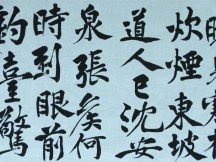 炊煙東坡
道人已沈
泉張侯何
時到眼前
釣臺驚